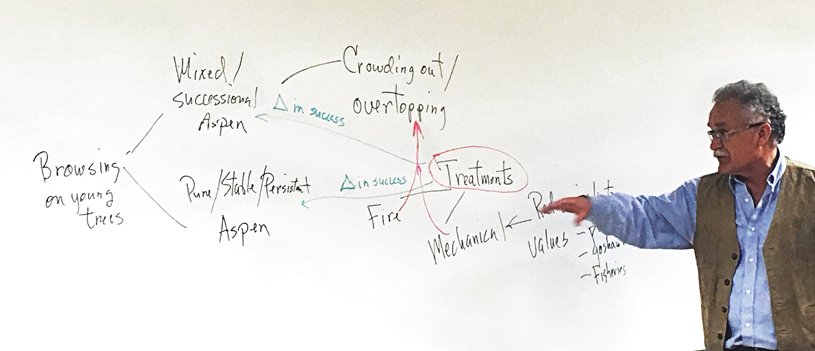 Mixed/
successional
Aspen
Crowding out/
overtopping
Δ in success
Browsing
on young
trees
Pure/Stable/Persistant
Aspen
Δ in success
Treatments
Fire
Mechanical
values
- Fisheries